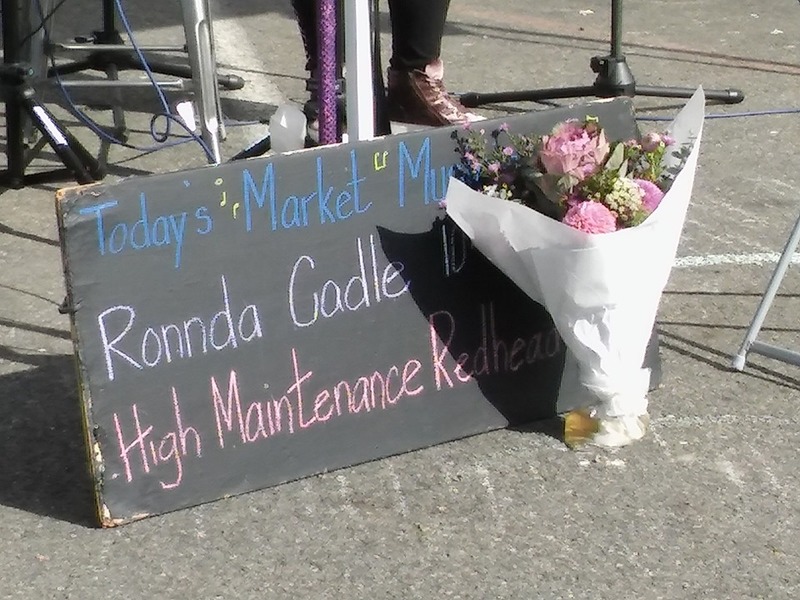 Today's "Market" Mu
Ronnda Cadle 10
High Maintenance Redhead